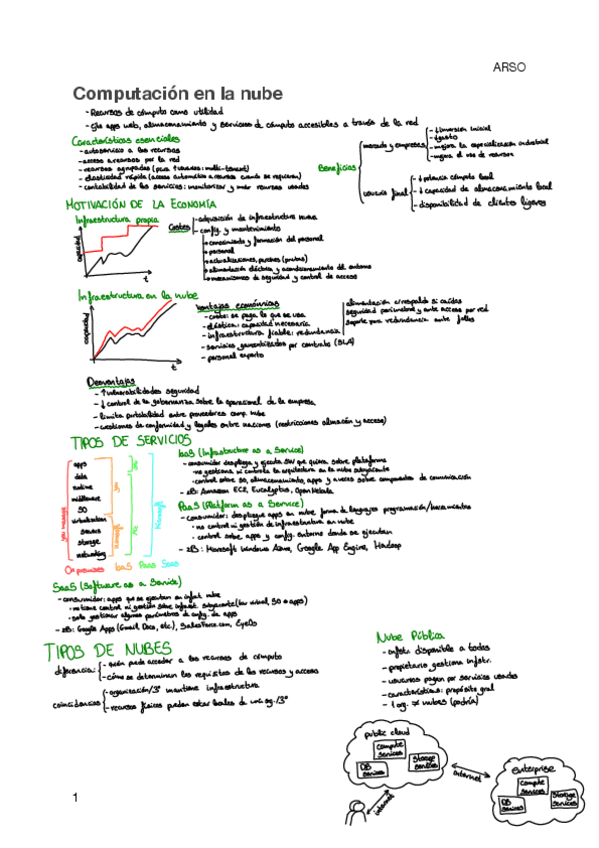 ARSO
Computación en la nube
- Recursos de cómputo como utilidad
- Sólo apps web, almacenamiento y servicios de cómputo accesibles a través de la red
Características esenciales
- autoservicio a los recursos
- acceso a recursos por la red
- recursos agrupados (para usuarios: multi-tenant)
- elasticidad rápida (acceso automático a recursos cuando se requieran)
- contabilidad de los servicios: monitorizar y medir recursos usados
Beneficios
mercado y empresas
- ↓ inversión inicial
- ↓ gasto
- mejora la especialización industrial
- mejora el uso de recursos
usuario final
- ↓ potencia cómputo local
- ↓ capacidad de almacenamiento local
- disponibilidad de clientes ligeros
MOTIVACIÓN DE LA ECONOMÍA
Infraestructura propia
capacidad
t
Costes
- adquisición de infraestructura nueva
- config. y mantenimiento
conocimiento y formación del personal
personal
actualizaciones, parches (pruebas)
alimentación eléctrica y acondicionamiento del entorno
mecanismos de seguridad y control de acceso
Infraestructura en la nube
capacidad
t
Ventajas económicas
- coste: se paga lo que se usa
- elástica: capacidad necesaria
- infraestructura fiable: redundancia
- servicios garantizados por contrato (SLA)
- personal experto
alimentación c/respaldo si caídas
seguridad perimetral y ante acceso por red
soporte para redundancia ante fallos
Desventajas
- ↑ vulnerabilidades seguridad
- ↓ control de la gobernanza sobre lo operacional de la empresa
- limita portabilidad entre proveedores comp. nube
- cuestiones de conformidad y legales entre naciones (restricciones almacén y acceso)
TIPOS DE SERVICIOS
you manage
apps
data
runtime
middleware
SO
virtualization
servers
storage
networking
On premises IaaS PaaS SaaS
IaaS (Infrastructure as a Service)
- consumidor despliega y ejecuta SW que quiera sobre plataforma
no gestiona ni controla la arquitectura en la nube subyacente
control sobre SO, almacenamiento, apps y a veces sobre componentes de comunicación
- EB: Amazon EC2, Eucalyptus, OpenNebula
PaaS (Platform as a Service)
- consumidor: despliegue apps en nube forma de lenguajes programación/herramientas
no control ni gestión de infraestructura en nube
control sobre apps y config. entorno donde se ejecutan
- EB: Microsoft Windows Azure, Google App Engine, Hadoop
SaaS (Software as a Service)
- consumidor: apps que se ejecutan en infrat. nube
no tiene control ni gestión sobre infraest. subyacente (serv virtual, SO o apps)
solo gestionar algunos parámetros de config. de apps
- EB: Google Apps (Gmail, Docs, etc.), SalesForce.com, EyeOs
TIPOS DE NUBES
diferencia:
- quién puede acceder a los recursos de cómputo
- cómo se determinan los requisitos de los recursos y acceso
coincidencias
- organización/3º mantiene infraestructura
- recursos físicos pueden estar locales de una org./3º
Nube Pública
- infstr. disponible a todos
- propietario gestiona infstr.
- usuarios pagan por servicios usados
- características: propósito gral
- 1 org. ≠ nubes (podría)
public cloud
compute services
DB services
Storage services
internet
internet
enterprise
compute services
DB services
Storage services
1